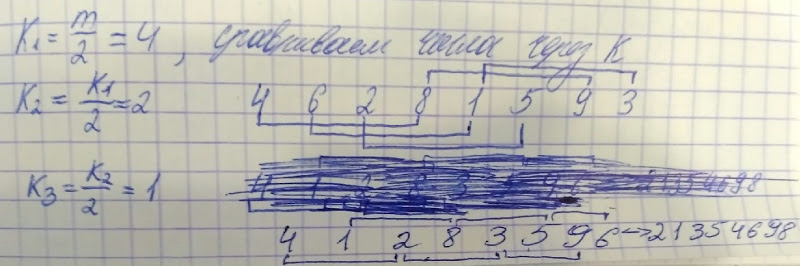 K₁ = m/2 = 4, сравниваем числа через K
K₂ = K₁/2 = 2 4 6 2 8 1 5 9 3
K₃ = K₂/2 = 1
4 1 2 8 3 5 9 6 → 21354698